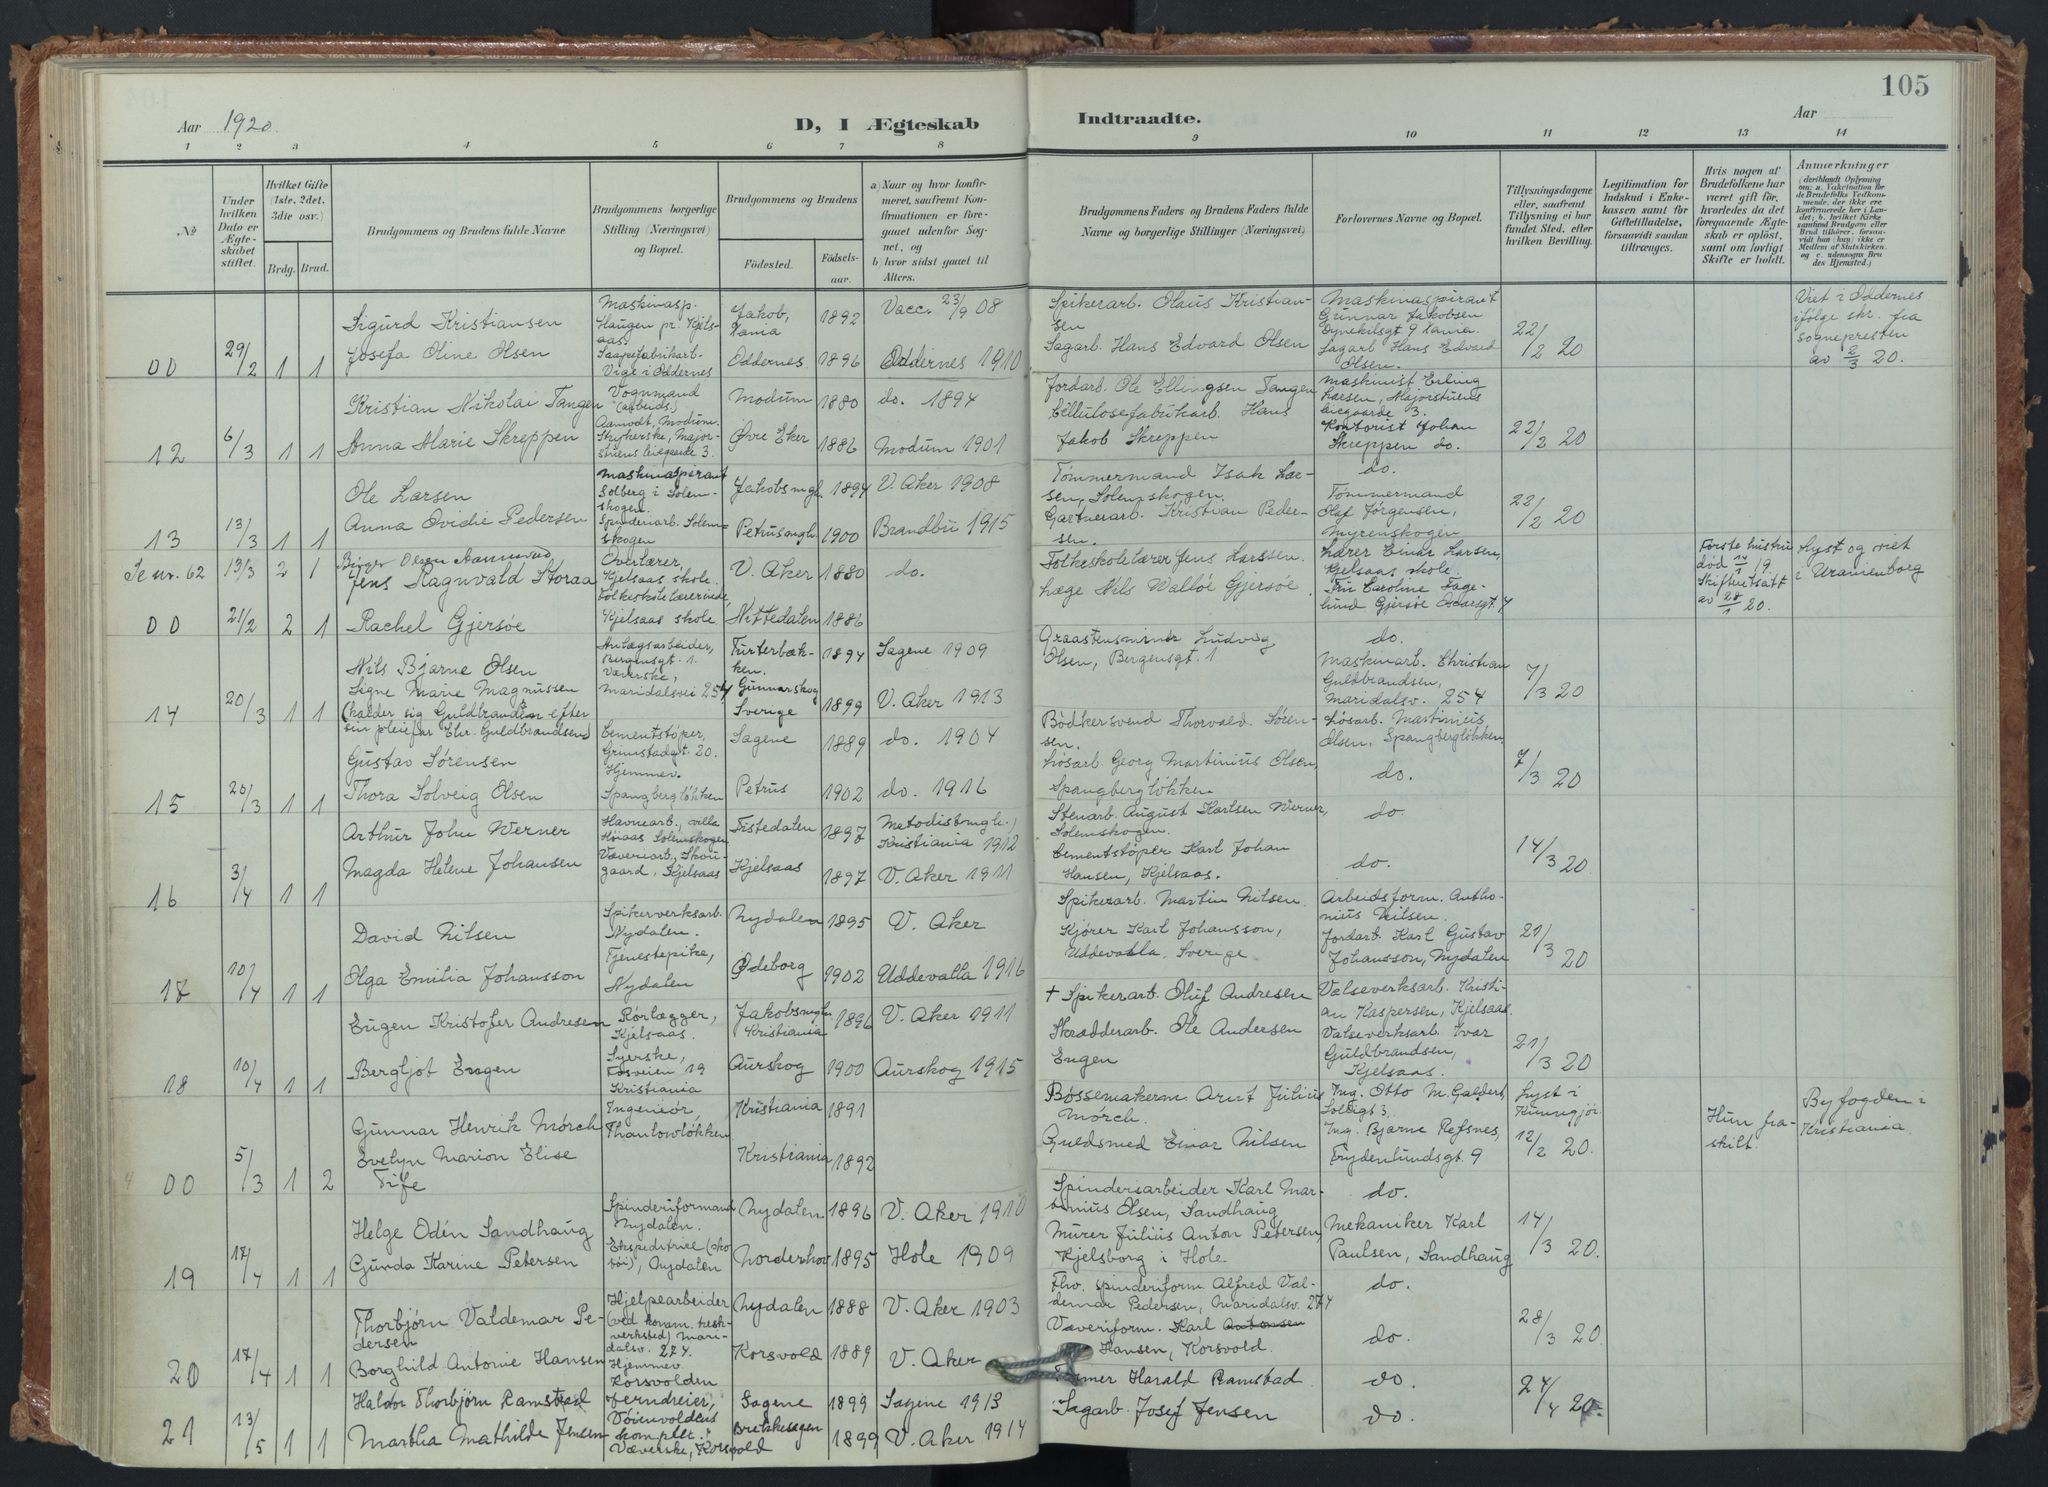 105
Aar 1920.
D, I Ægteskab Indtraadte.
Aar
1 2 3 4 5 6 7 8 9 10 11 12 13 14
No
Under hvilken Dato er Ægteskabet stiftet.
Hvilket Gifte (1ste, 2det, 3die osv.)
Brdg. Brud.
Brudgommens og Brudens fulde Navne.
Brudgommens borgerlige Stilling (Næringsvei) og Bopel.
Brudgommens og Brudens
Fødested. Fødselsaar.
a) Naar og hvor konfirmeret, saafremt Konfirmationen er foregaaet udenfor Sognet, og
b) hvor sidst gaaet til Alters.
Brudgommens Faders og Brudens Faders fulde Navne og borgerlige Stillinger (Næringsvei)
Forlovernes Navne og Bopel.
Tillysningsdagene eller, saafremt Tillysning ei har fundet Sted, efter hvilken Bevilling.
Legitimation for Indskud i Enkekassen samt for Giftetilladelse, forsaavidt saadan tiltrænges.
Hvis nogen af Brudefolkene har været gift før, hvorledes da det foregaaende Ægteskab er opløst, samt om lovligt Skifte er holdt.
Anmærkninger
00 29/2 1 1
Sigurd Kristiansen
Maskinasp. Haugen pr. Kjelsaas
Jakob, Xania 1892 Vacc. 23/9 08
Spikerarb. Olaus Kristiansen
Maskinaspirant Gunnar Jakobsen Dynekilsgt 9 Xania.
22/2 20
Viet i Oddernes ifølge skr. fra sognepresten av 2/3 20.
Josefa Oline Olsen
Saapefabrikarb. Vige i Oddernes
Oddernes 1896 Oddernes 1910
Sagarb. Hans Edvard Olsen
Sagarb Hans Edvard Olsen.
12 6/3 1 1
Kristian Nikolai Tangen
Vognmand (arbeids.) Aamodt, Modum.
Modum 1880 do. 1894
Jordarb. Ole Ellingsen Tangen
Maskinist Erling Larsen, Majorstuens leiegaarde 3.
22/2 20
Anna Marie Skreppen
Strykerske, Majorstuens leiegaarde 3.
Øvre Eker 1886 Modum 1901
Cellulosefabrikarb. Hans Jakob Skreppen
Kontorist Johan Skreppen do.
13 13/3 1 1
Ole Larsen
Maskinaspirant Solberg i Solemskogen.
Jakobsmgh. 1894 V. Aker 1908
Tømmermand Isak Larsen, Solemskogen.
do.
22/2 20
Anna Ovidie Pedersen
Spinneriarb. Solemskogen
Petrusmgh. 1900 Brandbu 1915
Gartnerarb. Kristian Pedersen.
Tømmermand Olaf Jørgensen, Myrenskogen
Se nr. 62 13/3 2 1
Birger Olsen Aamuvad
Jens Ragnvald Storaa
Overlærer, Kjelsaas skole.
V. Aker 1880 do.
Folkeskolelærer Jens Larssen.
Lærer Einar Larsen, Kjelsaas skole.
Første hustru død 1/1 19 Skifteutsatt av 28/1 20.
Lyst og viet i Uranienborg
00 21/2 2 1
Rachel Gjersøe
Folkeskolelærerinde, Kjelsaas skole
Nittedalen 1886
Læge Nils Walløe Gjersøe
Fru Caroline Fagelund Gjersøe Oscarsgt. 4
14 20/3 1 1
Nils Bjarne Olsen
Anlægsarbeider, Bergensgt. 1.
Furterbakken. 1894 Sagene 1909
Graastensminør Ludvig Olsen, Bergensgt. 1
do.
7/3 20
Signe Marie Magnussen (kalder sig Guldbrandsen efter sin pleiefar Chr. Guldbrandsen)
Væverske, Maridalsvei 254
Gunnarskog Sverige 1899 V. Aker 1913
Maskinarb. Christian Guldbrandsen, Maridalsv. 254
15 20/3 1 1
Gustav Sørensen
Cementstøper, Grimstadgt. 20.
Sagene 1889 do. 1904
Bødkersvend Thorvald Sørensen.
Løsarb. Martinius Olsen, Spangbergløkken,
7/3 20
Thora Solveig Olsen
Hjemmev. Spangbergløkken
Petrus 1902 do. 1916
Løsarb. Georg Martinius Olsen, Spangbergløkken
do.
16 3/4 1 1
Arthur John Werner
Havnearb., villa Høiaas Solemskogen
Tistedalen 1897 Metodistmgh., Kristiania 1912
Stenarb. August Karlsen Werner, Solemskogen.
do.
14/3 20
Magda Helene Johansen
Væveriarb., Skougaard, Kjelsaas
Kjelsaas 1897 V. Aker 1911
Cementstøper Karl Johan Hansen, Kjelsaas.
do.
17 10/4 1 1
David Nilsen
Spikerverksarb. Nydalen.
Nydalen 1895 V. Aker
Spikerarb. Martin Nilsen
Arbeidsform. Anthonius Nilsen.
21/3 20
Olga Emilia Johansson
Tjenestepike, Nydalen
Ødeborg 1902 Uddevalla 1916
Kjører Karl Johansson, Uddevalla, Sverige
Jordarb. Karl Gustav Johansson, Nydalen
18 10/4 1 1
Eugen Kristofer Andresen
Rørlægger, Kjelsaas.
Jakobsmgh. Kristiania 1896 V. Aker 1911
+ Spikerarb. Oluf Andresen
Valseverksarb. Kristian Kaspersen, Kjelsaas
21/3 20
Bergljot Engen
Syerske, Fosveien 19 Kristiania
Aurskog 1900 Aurskog 1915
Skrædderarb. Ole Andersen Engen
Valseverksarb. Ivar Guldbrandsen, Kjelsaas.
00 5/3 1 2
Gunnar Henrik Mørch
Ingeniør, Thaulowløkken
Kristiania 1891
Bøssemakerm. Arnt Julius Mørch.
Ing. Otto M. Galdert, Solligt 3.
Lyst i Kunngjør. 12/2 20.
Hun fraskilt.
Byfogden i Kristiania.
Evelyn Marion Elise Fife
Kristiania 1892
Guldsmed Einar Nilsen
Ing. Bjarne Refsnes, Frydenlundsgt. 9
19 17/4 1 1
Helge Odén Sandhaug
Spinneriformand Nydalen.
Nydalen 1896 V. Aker 1910
Spinneriarbeider Karl Martinius Olsen, Sandhaug
do.
14/3 20.
Gunda Karine Petersen
Ekspeditrice (skotøi), Nydalen
Norderhov 1895 Hole 1909
Murer Julius Anton Petersen, Kjelsborg i Hole.
Mekaniker Karl Paulsen, Sandhaug
20 17/4 1 1
Thorbjørn Valdemar Pedersen
Hjelpearbeider (ved komm. teskverksted) Maridalsv. 274.
Nydalen 1888 V. Aker 1903
Fhv. spinneriform. Alfred Valdemar Pedersen, Maridalsv. 274
do.
28/3 20.
Borghild Antonie Hansen
Hjemmev. Korsvolden
Korsvold 1889 V. Aker
Væveriform. Karl Antonsen Hansen, Korsvold.
do.
21 13/5 1 1
Haldor Thorbjørn Ramstad
Jerndreier, Vøienvoldens kompl.
Sagene 1899 Sagene 1913
Harald Ramstad
do.
24/4 20.
Martha Mathilde Jensen
Væverske, Korsvold
Brekkesagen 1899 V. Aker 1914
Sagarb. Josef Jensen
do.